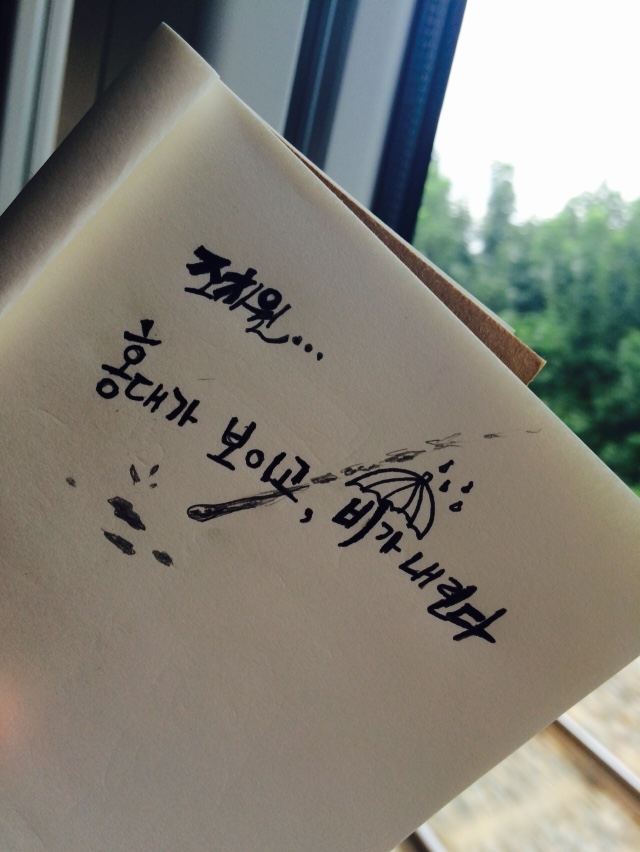 조치원...
홍대가 보이고, 비가 내려다